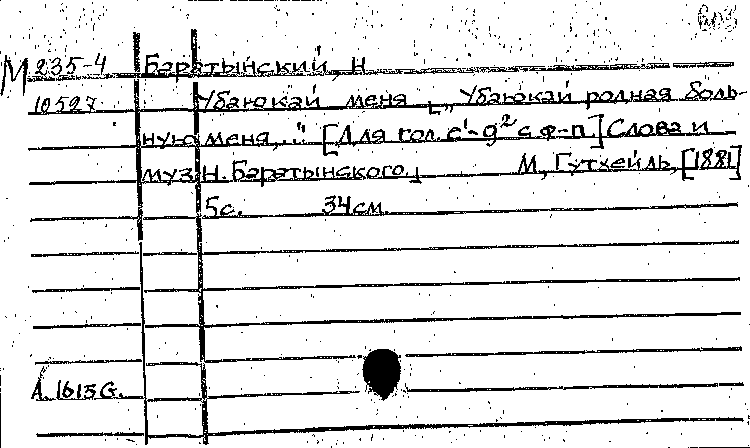 М 235-4 Баратынский, Н
10527 Убаюкай меня [„Убаюкай родная боль-
ную меня,.." [Для гол. c¹-g² с ф-п.] Слова и
муз. Н. Баратынского.] М, Гутхейль, [1881]
5с. 34см.
А. 1613 G.